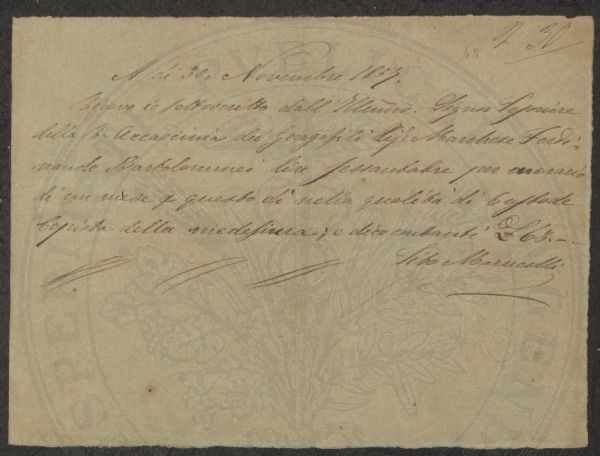 N 30
48
A dì 30, Novembre 1857.
Ricevo io sottoscritto dall'Illmo. Signor
della R. Accademia dei Georgofili Sigr. Marchese Ferdi-
nando Bartolommei lire sessantatre per onorario
di un mese a questo dì nella qualità di Custode
Copista della medesima; e dico contanti £ 63. —
Tito Marucelli